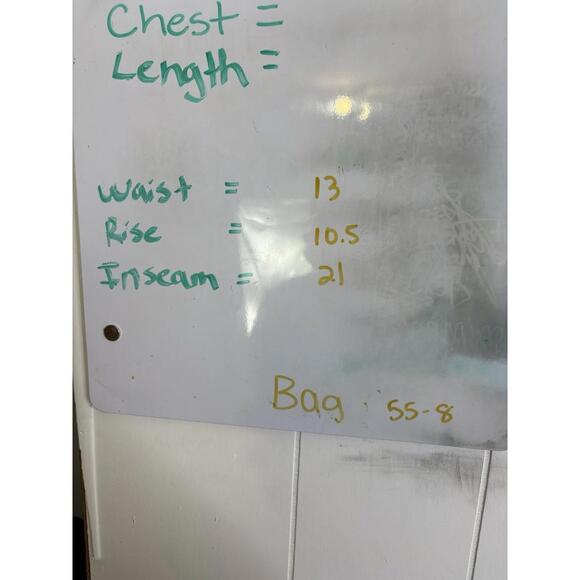 Chest =
Length =
Waist = 13
Rise = 10.5
Inseam = 21
Bag 55-8